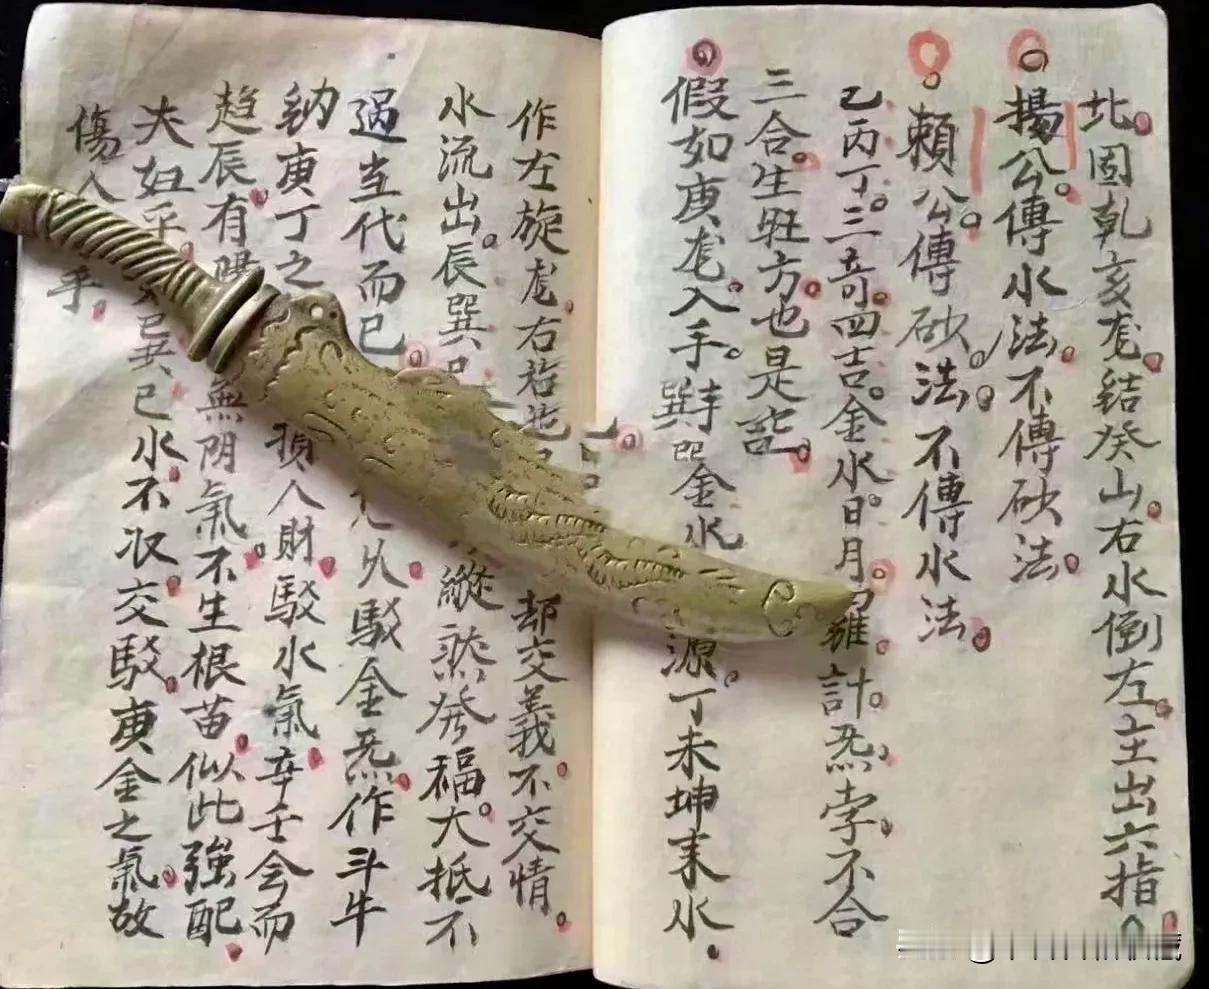 北。固乾亥龙。結癸山。右水倒左。主出六指
楊公。傳水法。不傳砂法。
賴公。傳砂法。不傳水法。
乙丙丁。三奇。四吉。金水。日月。羅。計。炁。孛。不合
三合。生旺方。也是
假如庚龙。入手。巽 金水 源。丁未坤来水。
作左旋龙。右 却交義。不交情。
水流出。辰巽 縱然發福。大抵不
過当代而已。 駁金炁。作斗牛
納庚丁之 損人財。駁水氣。辛壬会而
趋辰。有陽無阴氣。不生根苗。似此強配
夫妇乎。 已水。不収。交駁。庚金之氣。故
傷人 乎。